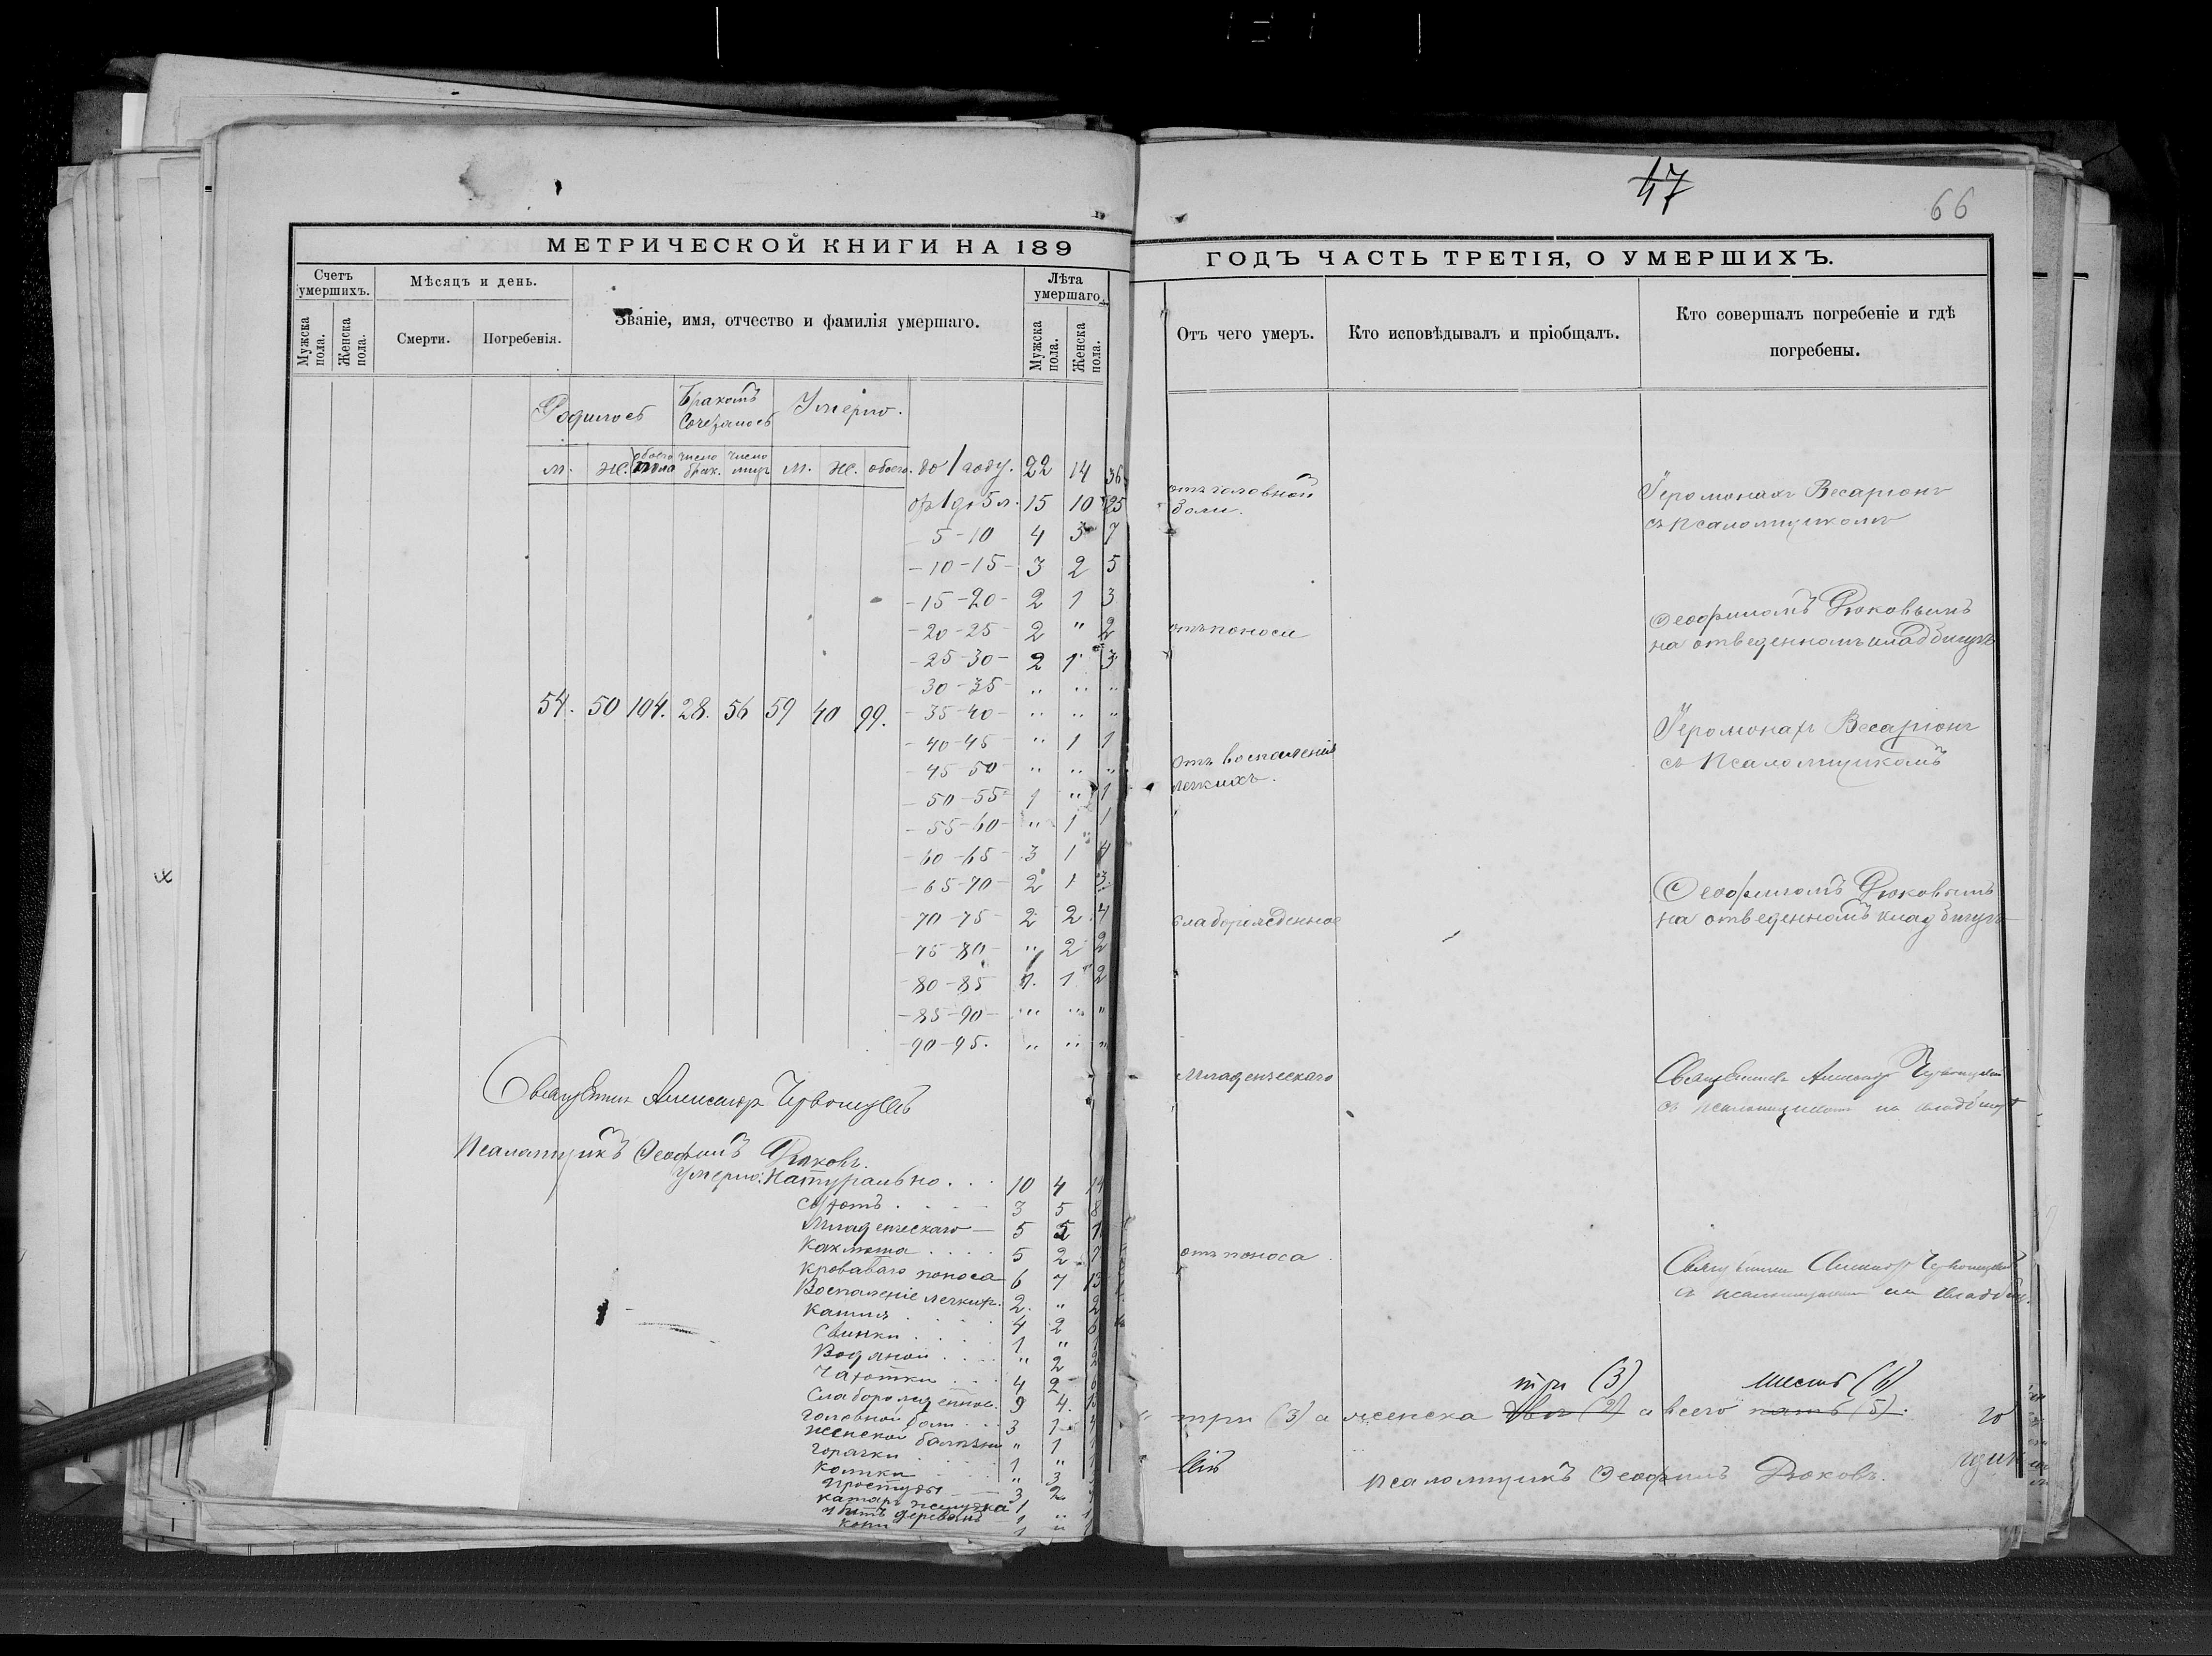 МЕТРИЧЕСКОЙ КНИГИ НА 189
Счетъ умершихъ.
Мужска пола.
Женска пола.
Мѣсяцъ и день.
Смерти.
Погребенія.
Званіе, имя, отчество и фамилія умершаго.
Лѣта умершаго.
Мужска пола.
Женска пола.
Родилось
Бракомъ Сочеталось
Умерло.
м. ж. обоего пола число брак. число лиц м. ж. обоего.
54. 50 104. 28. 56 59 40 99.
до 1 году. 22 14 36
от 1 до 5 л. 15 10 25
5-10 4 3 7
-10-15- 3 2 5
-15-20- 2 1 3
-20-25- 2 " 2
-25-30- 2 1 3
30-35- " " "
-35-40- " " "
-40-45 " 1 1
-45-50 " " "
-50-55 1 " 1
-55-60- " 1 1
-60-65- 3 1 4
-65-70- 2 1 3
-70-75- 2 2 4
-75-80- " 2 2
-80-85 1. 1 2
-85-90- " " "
-90-95. " " "
Священник Александр
Псаломщикъ Феофилъ Дюковъ.
Умерло: Натурально . . . 10 4 14
3 5 8
Младенческаго — 5 5
5 2 7
Кроваваго поноса 6 7 13
Воспаленіе легких. 2. " 2
Кашля 4 2 6
Свинки . . . . 1 "
Водяной . . . . " 2 2
Чахотки . . . 4 2 6
Слаборожденнос. 9 4. 13
Головной боли . . . 3 1 4
Женской болѣзни " 1
Горячки 1 "
Колики " 3
Простуды — 3 2
Катаръ желудка 1 "
Убитъ деревомъ 1 "
1 "
47
66
ГОДЪ ЧАСТЬ ТРЕТІЯ, О УМЕРШИХЪ.
Отъ чего умеръ.
Кто исповѣдывалъ и пріобщалъ.
Кто совершалъ погребеніе и гдѣ погребены.
отъ головной боли.
Іеромонахъ Весаріонъ
съ псаломщикомъ
отъ поноса
Феофиломъ Дюковымъ
на отведенномъ кладбищѣ
Отъ воспаленія легкихъ.
Іеромонахъ Весаріонъ
съ Псаломщикомъ
слаборожденное
Феофиломъ Дюковымъ
на отведенномъ кладбищѣ
Младенческаго
Священникъ Александр
съ псаломщикомъ на кладбищѣ
отъ поноса
Священник Александр
съ псаломщикомъ на кладбищ.
три (3) шесть (6)
три (3) а женска два (2) а всего пять (5).
псаломщикъ Феофилъ Дюковъ.